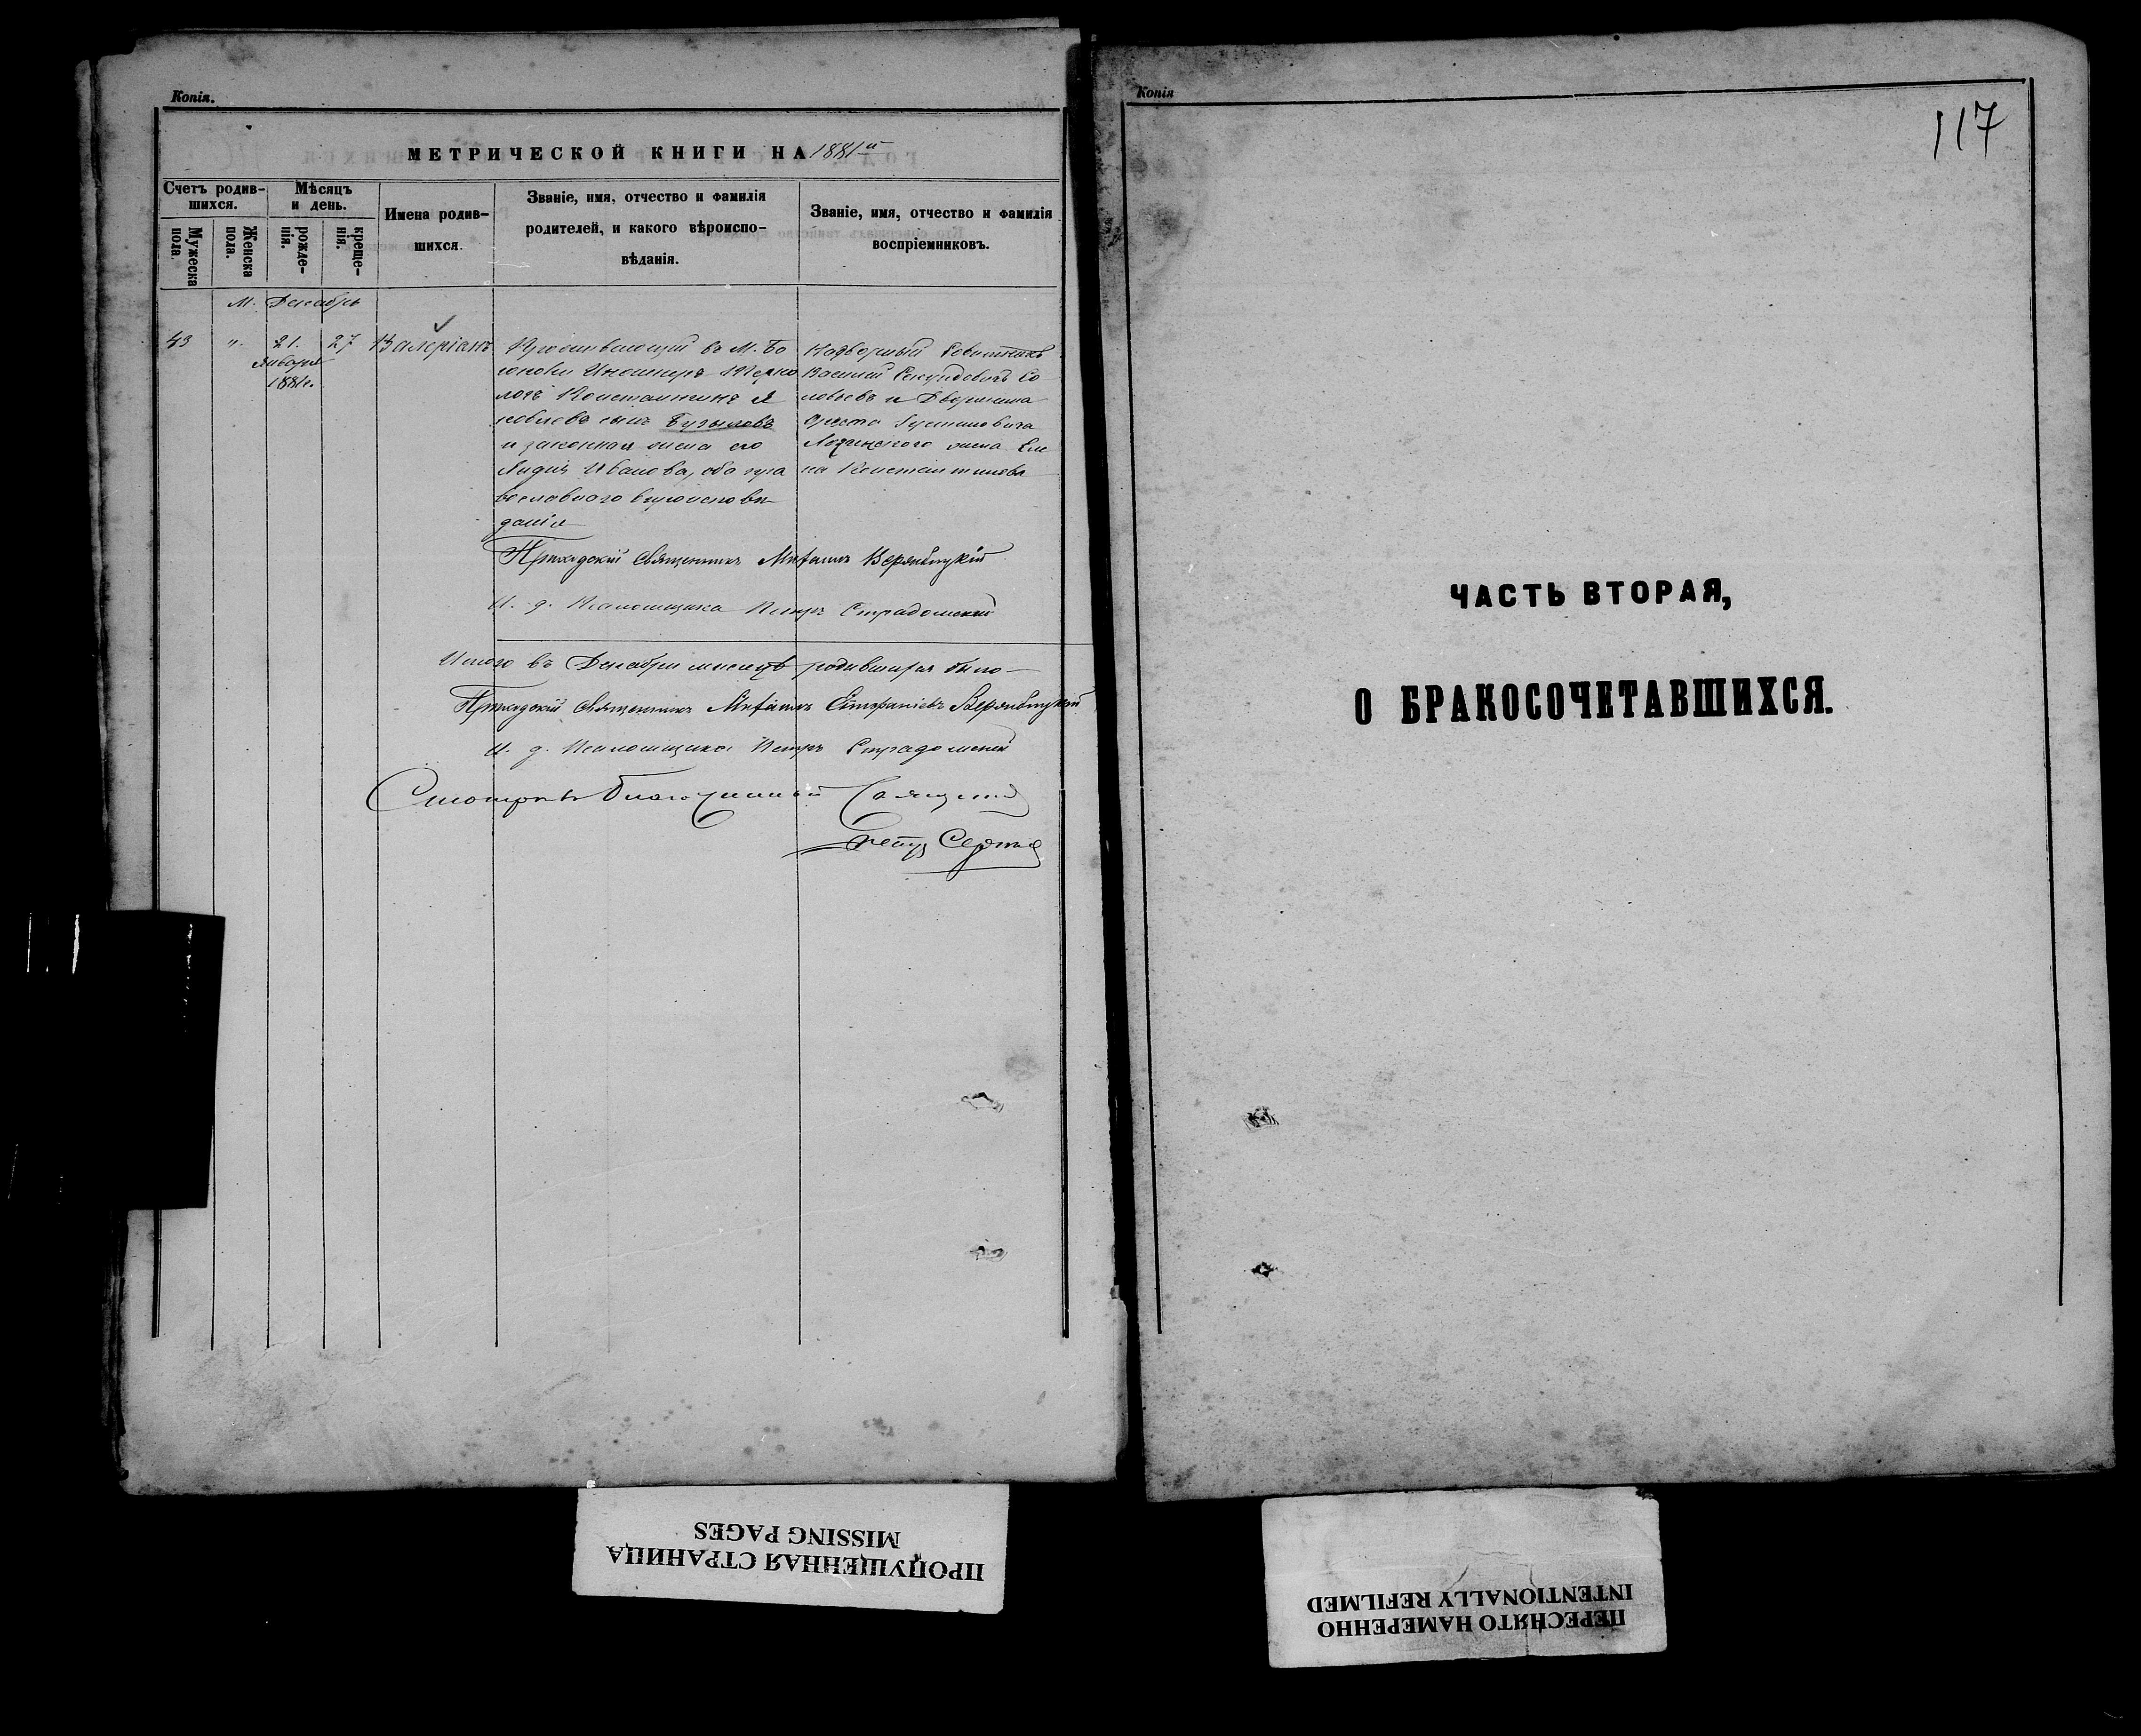 Копія.
МЕТРИЧЕСКОЙ КНИГИ НА 1881й
Счетъ родив-
шихся.
Мужеска
пола.
Женска
пола.
Мѣсяцъ
и день.
рожде-
нія.
креще-
нія.
Имена родив-
шихся.
Званіе, имя, отчество и фамилія
родителей, и какого вѣроиспо-
вѣданія.
Званіе, имя, отчество и фамилія
воспріемниковъ.
М. Декабрь
43 " 21. 27 Валеріанъ
Января
1881г.
Проживающій въ М.
Инженеръ
Константинъ Я
ковлевъ сынъ
и законная жена его
Лидія Иванова, оба пра
вославного вѣроисповѣ
данія
Надворный Совѣтникъ
Василій Со
ловьевъ и Дворянина
Ореста
жена Еле
на Константинова
Приходскій Священникъ Михаилъ
И. д. Псаломщика Петръ Страдомскій
Итого въ Декабрѣ мѣсяцѣ родившихся было
Приходскій Священникъ Михаилъ
И. д. Псаломщика Петръ Страдомскій
Смотрѣлъ Благочинный
Петръ
Копія
117
ЧАСТЬ ВТОРАЯ,
О БРАКОСОЧЕТАВШИХСЯ.
ПРОПУЩЕННАЯ СТРАНИЦА
MISSING PAGES
ПЕРЕСНЯТО НАМЕРЕННО
INTENTIONALLY REFILMED